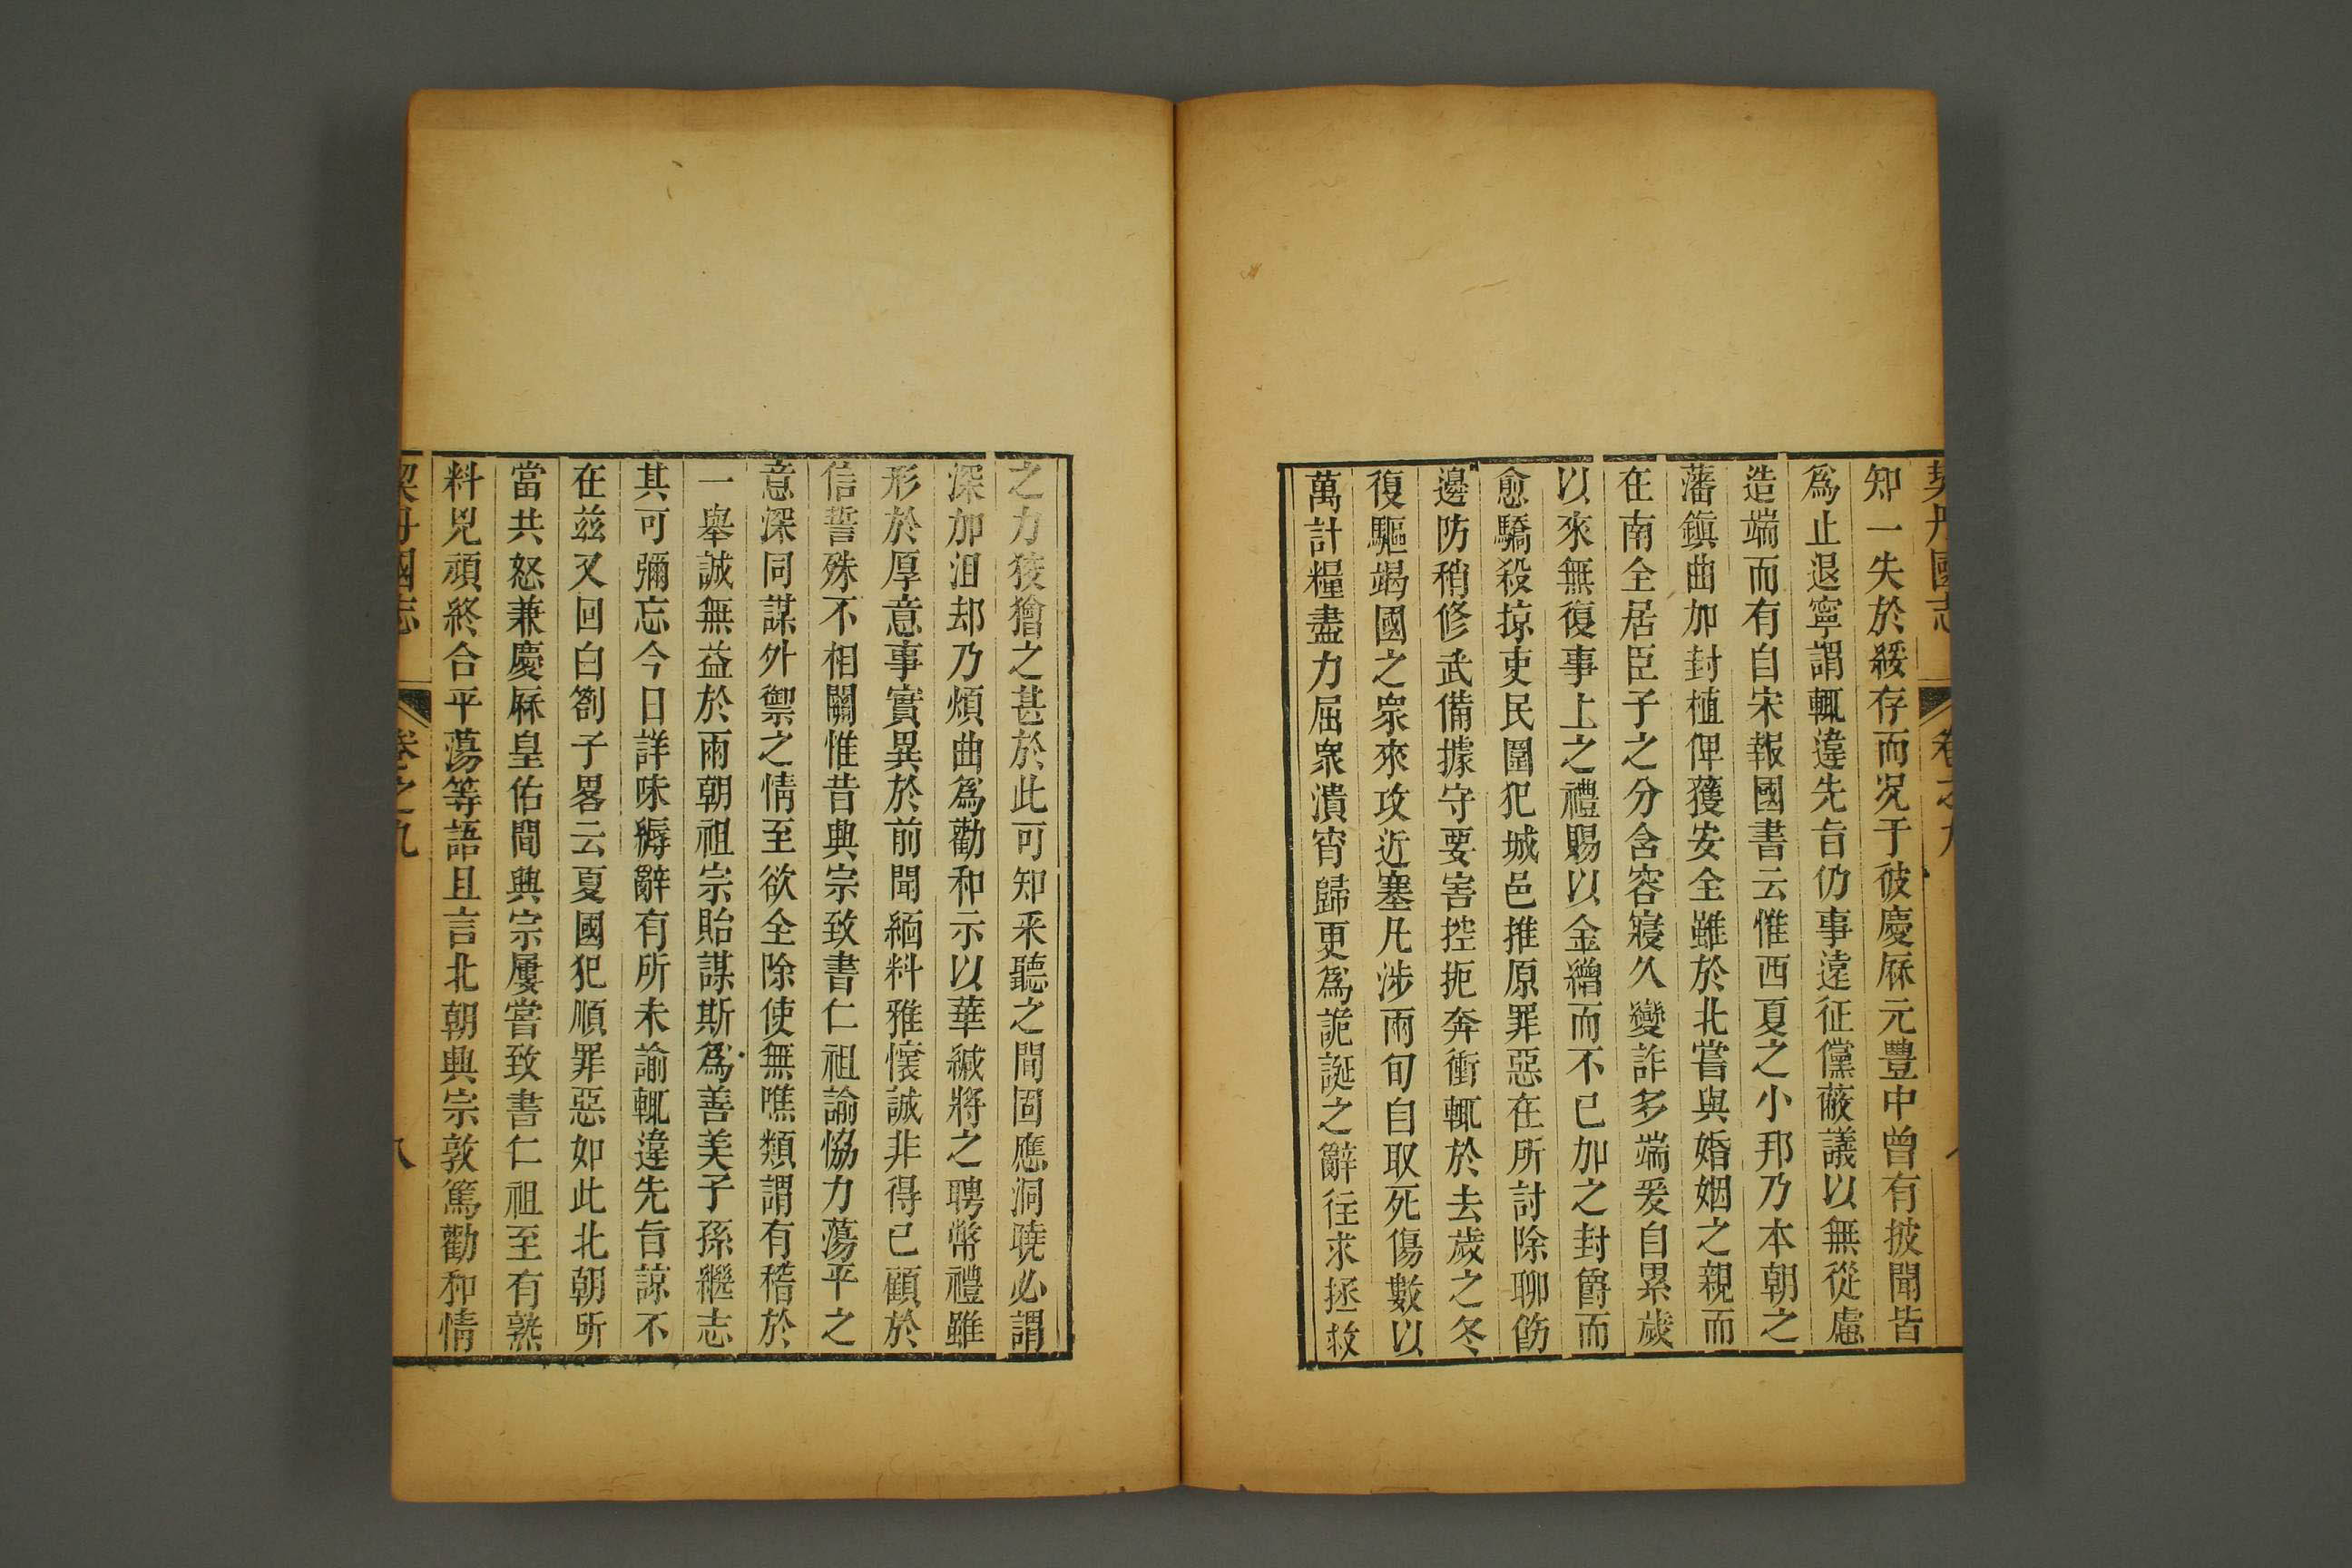 契丹國志 卷之九
知一失於綏存而况于彼慶厤元豊中曽有披聞皆
爲止退寧謂輒違先旨仍事遠征儻蔽議以無從慮
造端而有自宋報國書云惟西夏之小邦乃本朝之
藩鎮曲加封植俾獲安全雖於北嘗與婚姻之親而
在南全居臣子之分含容寖久變詐多端爰自累歲
以來無復事上之禮賜以金繒而不已加之封爵而
愈驕殺掠吏民圍犯城邑推原罪惡在所討除聊飭
邊防稍修武備據守要害控扼奔衝輒於去歲之冬
復驅竭國之衆來攻近塞凡涉兩旬自取死傷數以
萬計糧盡力屈衆潰宵歸更爲詭誕之辭往求拯救
之力狡獪之甚於此可知釆聽之間固應洞曉必謂
深加沮却乃煩曲爲勸和示以華緘將之聘幣禮雖
形於厚意事實異於前聞緬料雅懷誠非得已顧於
信誓殊不相關惟昔興宗致書仁祖諭恊力蕩平之
意深同謀外禦之情至欲全除使無噍類謂有稽於
一舉誠無益於兩朝祖宗貽謀斯爲善美子孫繼志
其可彌忘今日詳味縟辭有所未諭輒違先旨諒不
在兹又回白劄子畧云夏國犯順罪惡如此北朝所
當共怒兼慶厤皇佑間興宗屢嘗致書仁祖至有熟
料兇頑終合平蕩等語且言北朝興宗敦篤勸和情
契丹國志 卷之九 八